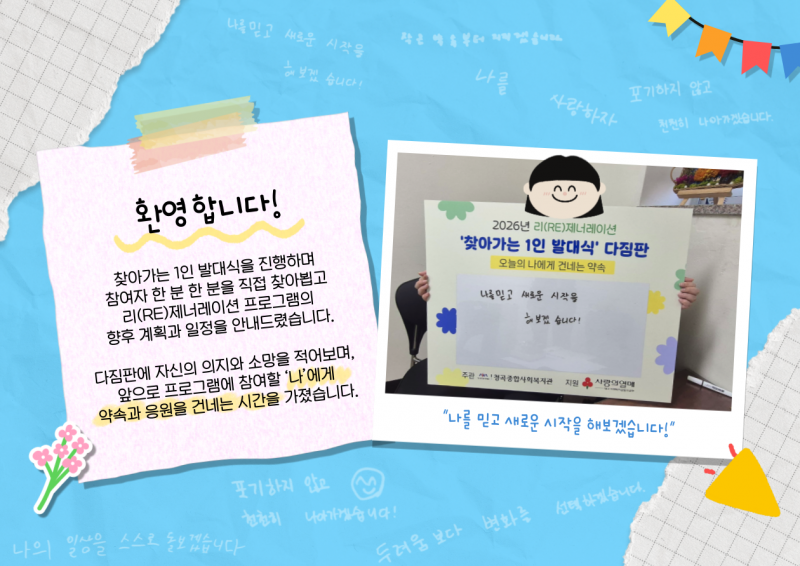 나를 믿고 새로운 시작을
해보겠 습니다!
작은 약속부터 지켜보겠습니다.
나를
사랑하자
포기하지 않고
천천히 나아가겠습니다.
환영합니다!
찾아가는 1인 발대식을 진행하며
참여자 한 분 한 분을 직접 찾아뵙고
리(RE)제너레이션 프로그램의
향후 계획과 일정을 안내드렸습니다.
다짐판에 자신의 의지와 소망을 적어보며,
앞으로 프로그램에 참여할 ‘나’에게
약속과 응원을 건네는 시간을 가졌습니다.
2026년 리(RE)제너레이션
'찾아가는 1인 발대식' 다짐판
오늘의 나에게 건네는 약속
나를 믿고 새로운 시작을
해보겠 습니다!
주관 정곡종합사회복지관 지원 사랑의열매
“나를 믿고 새로운 시작을 해보겠습니다!”
포기하지 않고
천천히 나아가겠습니다!
나의 일상을 스스로 돌보겠습니다
두려움 보다 변화를 선택하겠습니다.